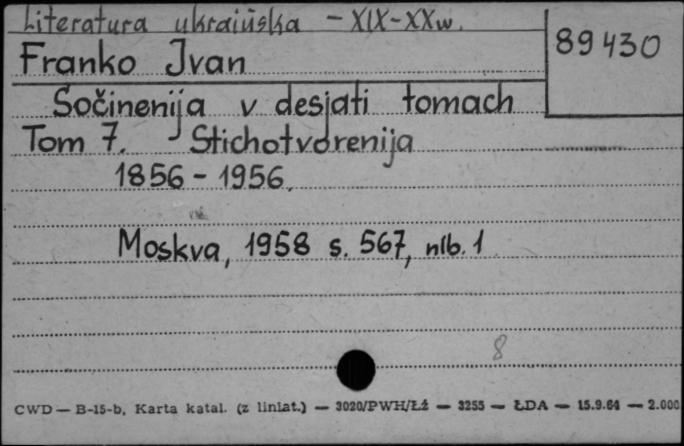 Literatura ukraińska - XIX-XXw.
89430
Franko Ivan
Sočinenija v desjati tomach
Tom 7. Stichotvorenija
1856 - 1956.
Moskva, 1958 s. 567, nlb. 1
8
CWD — B-15-b, Karta katal. (z liniat.) — 3020/PWH/Łż — 3255 — ŁDA — 15.9.64 — 2.000